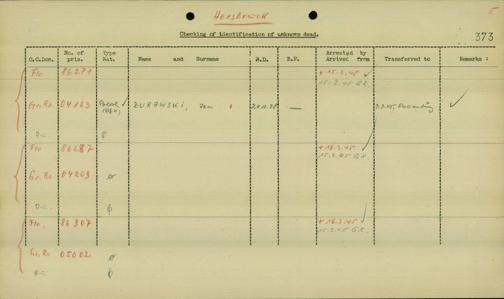 Hersbruck
5
Checking of identification of unknown dead.
373
C.C.Don. No. of pris. Type Nat. Name and Surname B.D. B.P. Arrested by Arrived from Transferred to Remarks :
Flo 86271 + 15.2.45 ✓
15.2.45 G.R.
Gr.Ro 04163 ✓ ZURAWSKI, Jan —
Flo 86287
15.2.45 G.R.
Gr.Ro 04203 ø
D.C. ø
Flo. 86307
15.2.45 G.R.
Gr. Ro 05002 ø
ø